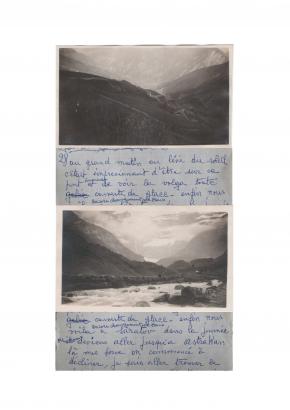 28 au grand matin au levé du soleil
c'était impressionant d'être sur ce
pont et de voir la volga toute
couverte de glace - enfin nous
couverte de glace - enfin nous
voilà à Saratov dans la journée
devions aller jusqu'à astrakhan
la mer fosse on commence à
décliner, je suis aller trouver le